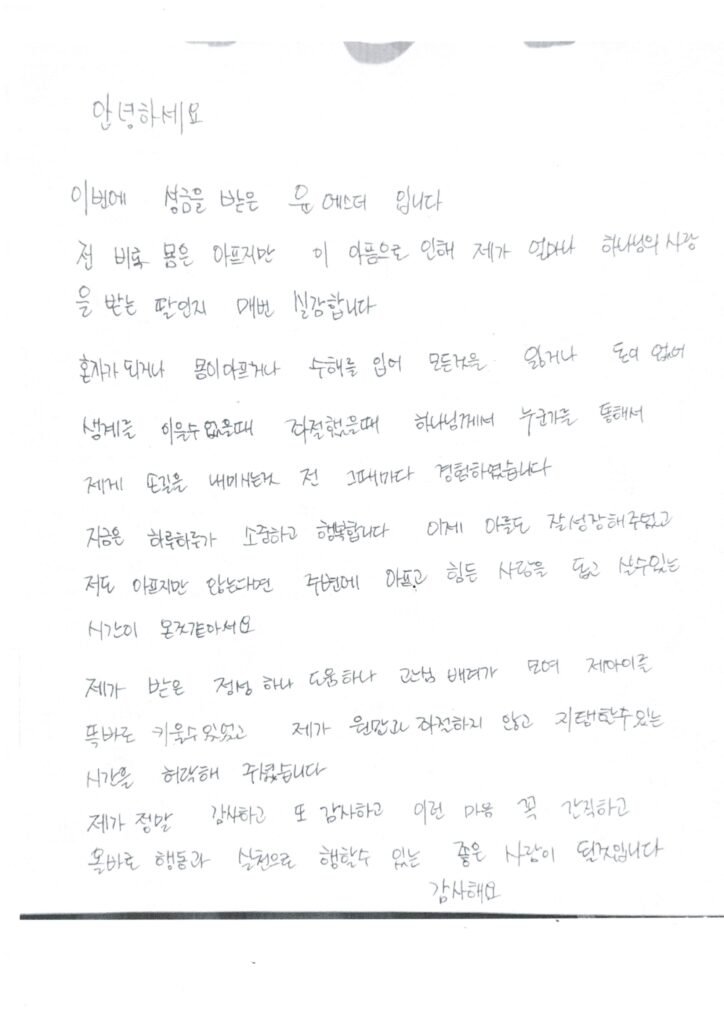 안녕하세요
이번에 성금을 받은 윤에스더 입니다
전 비록 몸은 아프지만 이 아픔으로 인해 제가 얼마나 하나님의 사랑
을 받는 딸인지 매번 실감합니다
혼자가 되거나 몸이아프거나 수해를 입어 모든것을 잃거나 돈이 없어
생계를 이을수 없을때 좌절했을때 하나님께서 누군가를 통해서
제게 손길을 내미시는것 전 그때마다 경험하였습니다
지금은 하루하루가 소중하고 행복합니다 이제 아들도 잘성장해주었고
저도 아프지만 않는다면 주변에 아프고 힘든 사람을 돕고 살수있는
시간이 온것같아서요
제가 받은 정성 하나 도움하나 관심 배려가 모여 제아이를
똑바로 키울수있었고 제가 원망과 좌절하지 않고 지탱할수있는
시간을 허락해 주셨습니다
제가 정말 감사하고 또 감사하고 이런 마음 꼭 간직하고
올바로 행동과 실천으로 행할수 있는 좋은 사람이 될것입니다
감사해요